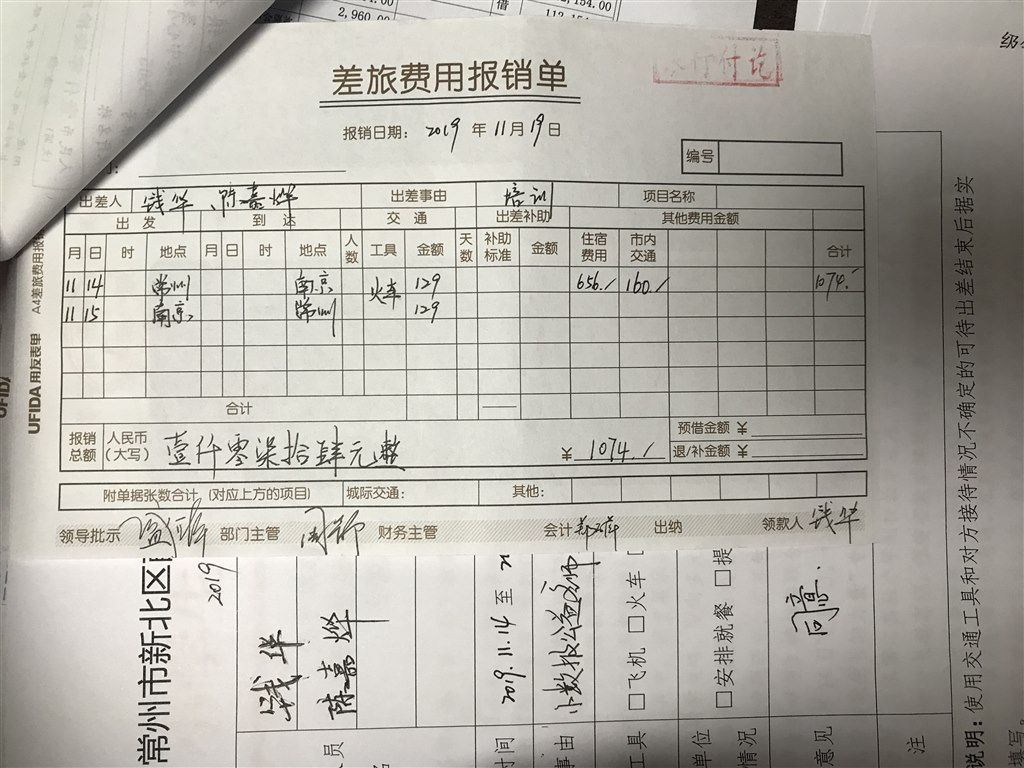 2,960.00
借
112,154.00
差旅费用报销单
付讫
报销日期: 2019 年 11 月 19 日
编号
出差人 钱华、陈嘉烨 出差事由 培训 项目名称
出发 到达 交通 出差补助 其他费用金额
月 日 时 地点 月 日 时 地点 人数 工具 金额 天数 补助标准 金额 住宿费用 市内交通 合计
11 14 常州 南京 火车 129 656./ 160./ 1074.
11 15 南京 常州 129
合计
报销总额 人民币(大写) 壹仟零柒拾肆元整 ¥ 1074./ 预借金额 ¥
退/补金额 ¥
附单据张数合计 (对应上方的项目) 城际交通: 其他:
领导批示 部门主管 财务主管 会计 出纳 领款人 钱华
UFIDA 用友表单 A4差旅费用报
UFIDA
常州市新北区
2019
人员 钱华 陈嘉烨
时间 2019.11.14 至
事由 小数报公益
工具 □飞机 □火车
单位
情况 □安排就餐 □提
意见 同意.
注
说明:使用交通工具和对方接待情况不确定的可待出差结束后据实
填写。
级